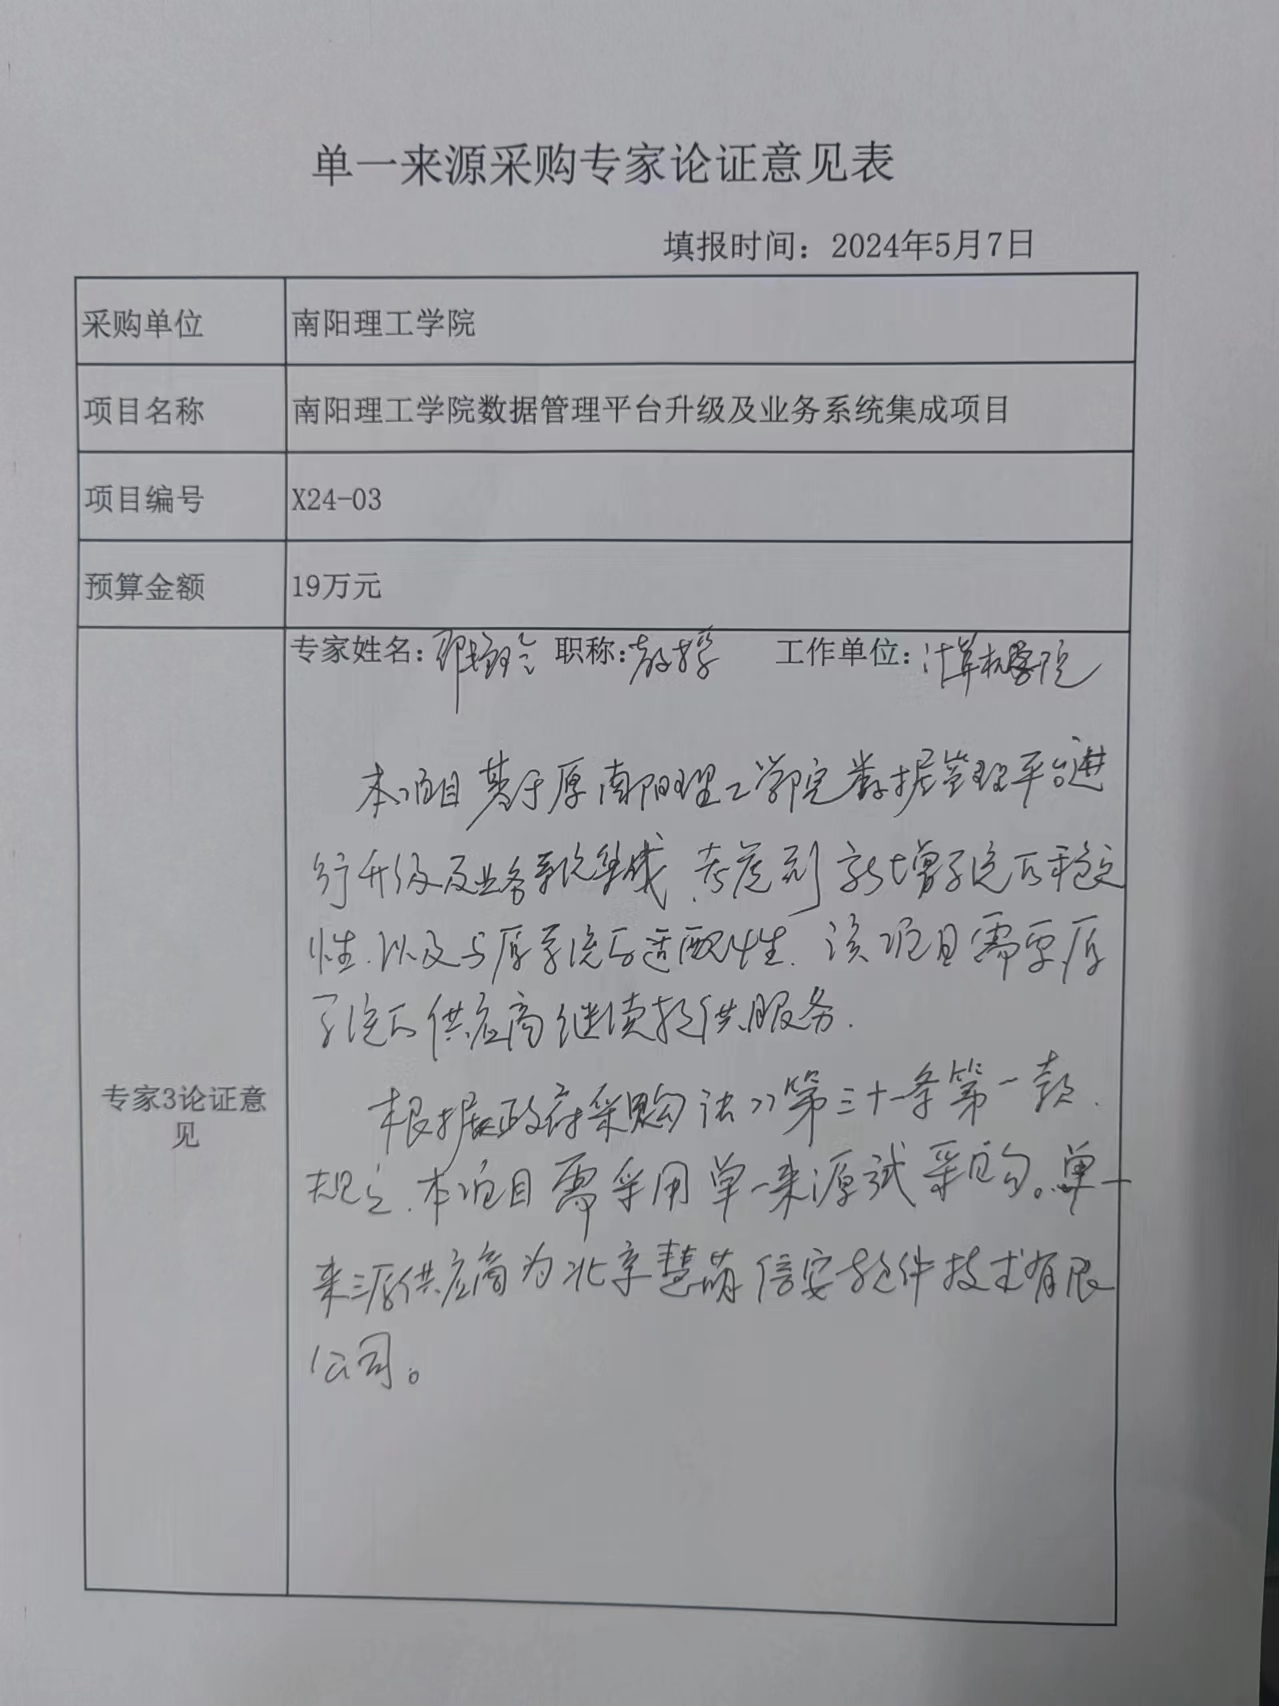 单一来源采购专家论证意见表
填报时间：2024年5月7日
采购单位 南阳理工学院
项目名称 南阳理工学院数据管理平台升级及业务系统集成项目
项目编号 X24-03
预算金额 19万元
专家姓名： 职称：教授 工作单位：计算机学院
本项目基于原南阳理工学院数据管理平台进
行升级及业务系统集成，考虑到新增系统的稳定
性，以及与原系统的适配性，该项目需要原
系统的供应商继续提供服务．
专家3论证意
见
根据政府采购法》第三十一条第一款，
规定，本项目需采用单一来源试采购。单一
来源供应商为北京慧萌信安软件技术有限
公司。